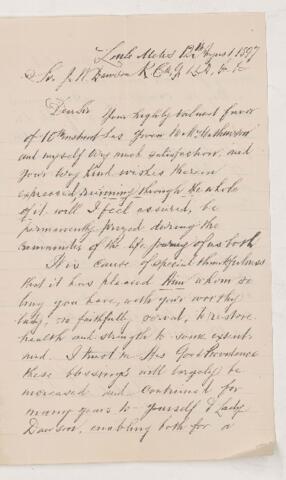 Little Metis 12th August 1897
To Sir J. W. Dawson K.C.M.G. L.L.D. &c &c
Dear Sir Your highly valued favor
of 10th instant has given Mrs Mathewson
and myself very much satisfaction, and
your very kind wishes therein
expressed running through the whole
of it will I feel assured, be
permanently prized during the
remainder of the life journey of us both
It is cause of special thankfulness
that it has pleased Him whom so
long you have, with your worthy
lady, so faithfully served, to restore
health and strength to some extent
and I trust in His Good Providence
these blessings will largely be
increased and continued for
many years to yourself & Lady
Dawson, enabling both for a